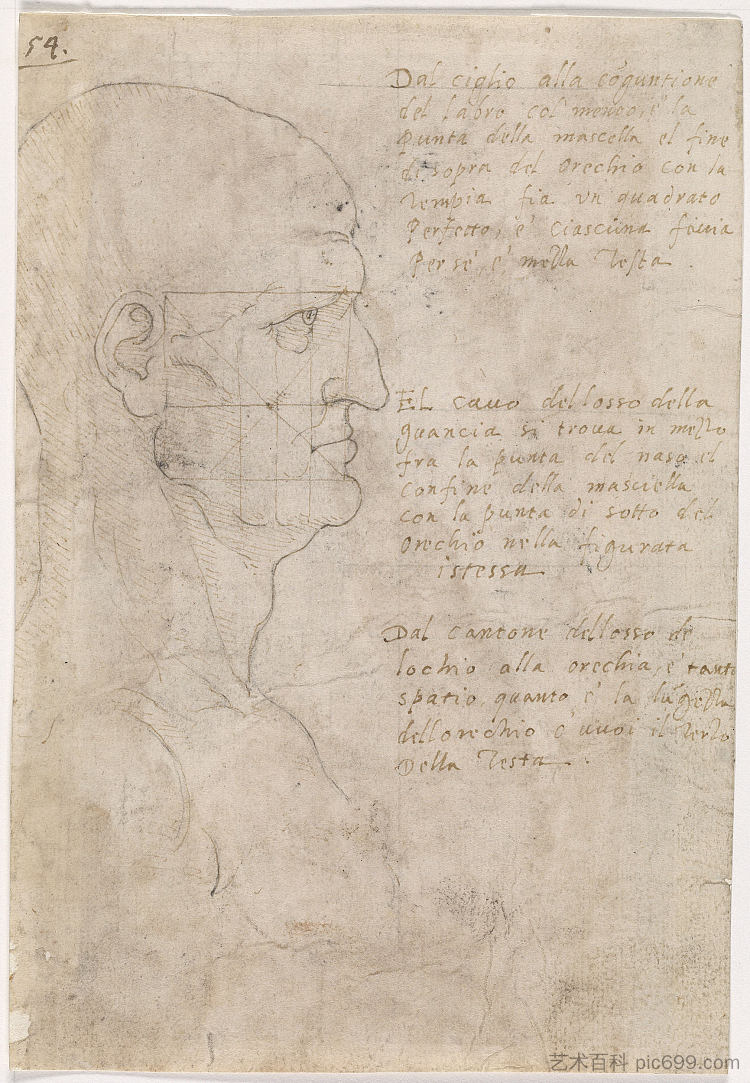 54.
Dal ciglio alla coguntione
del labro col mento, e la
Punta della mascella el fine
di sopra del orechio con la
Tempia fia un quadrato
Perfetto, e ciascuna facia
Per se, e mezza Testa
EL cavo dellosso della
guancia si trova in mezzo
fra la punta del naso el
confine della masciella
con la punta di sotto del
orechio nella figurata
istessa
Dal cantone dellosso de
lochio alla orechia, e tanto
spatio, quanto e la
dellorechio o vuoi il Terzo
Della Testa.
艺术百科 pic699.com